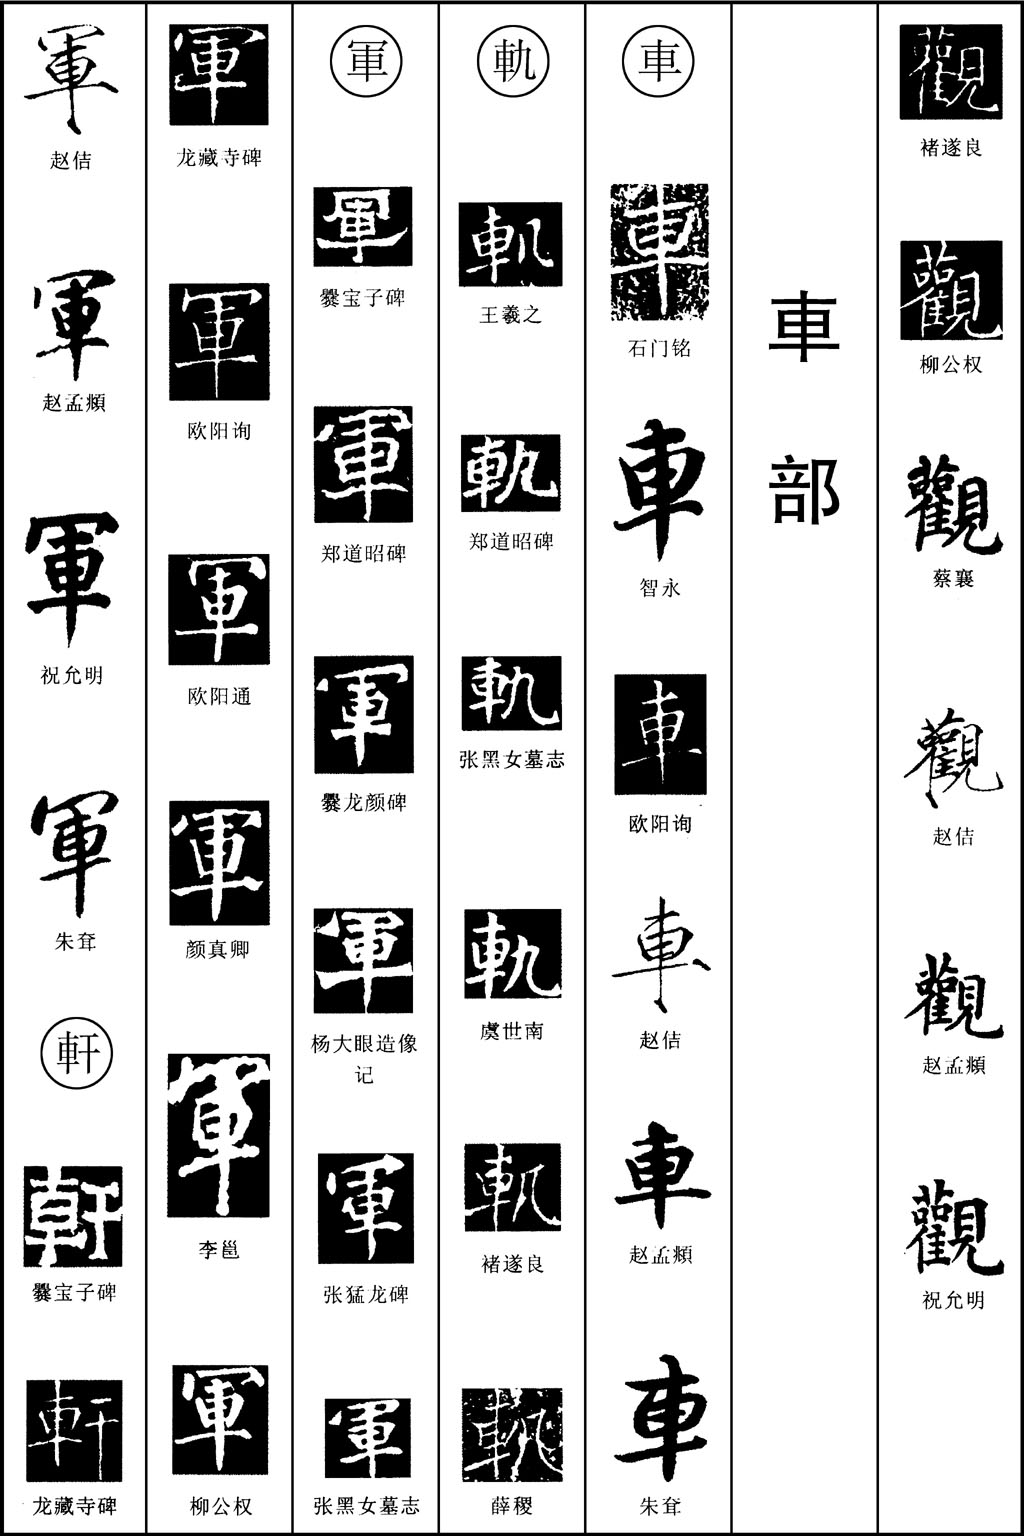 觀
褚遂良
觀
柳公权
觀
蔡襄
觀
赵佶
觀
赵孟頫
觀
祝允明
車
部
車
車
石门铭
車
智永
車
欧阳询
車
赵佶
車
赵孟頫
車
朱耷
軌
軌
王羲之
軌
郑道昭碑
軌
张黑女墓志
軌
虞世南
軌
褚遂良
軌
薛稷
軍
軍
爨宝子碑
軍
郑道昭碑
軍
爨龙颜碑
軍
杨大眼造像
记
軍
张猛龙碑
軍
张黑女墓志
軍
龙藏寺碑
軍
欧阳询
軍
欧阳通
軍
颜真卿
軍
李邕
軍
柳公权
軍
赵佶
軍
赵孟頫
軍
祝允明
軍
朱耷
軒
軒
爨宝子碑
軒
龙藏寺碑